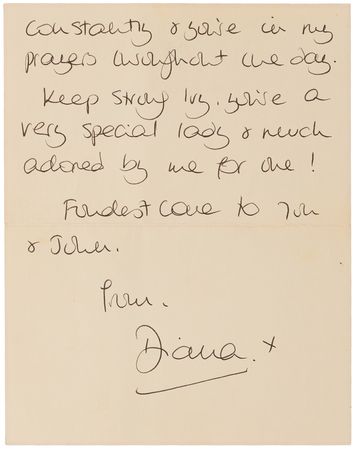 constantly & you're in my
prayers throughout the day.
Keep strong Ivy, you're a
very special lady & much
adored by me for one!
Fondest love to you
& John.
from.
Diana. x